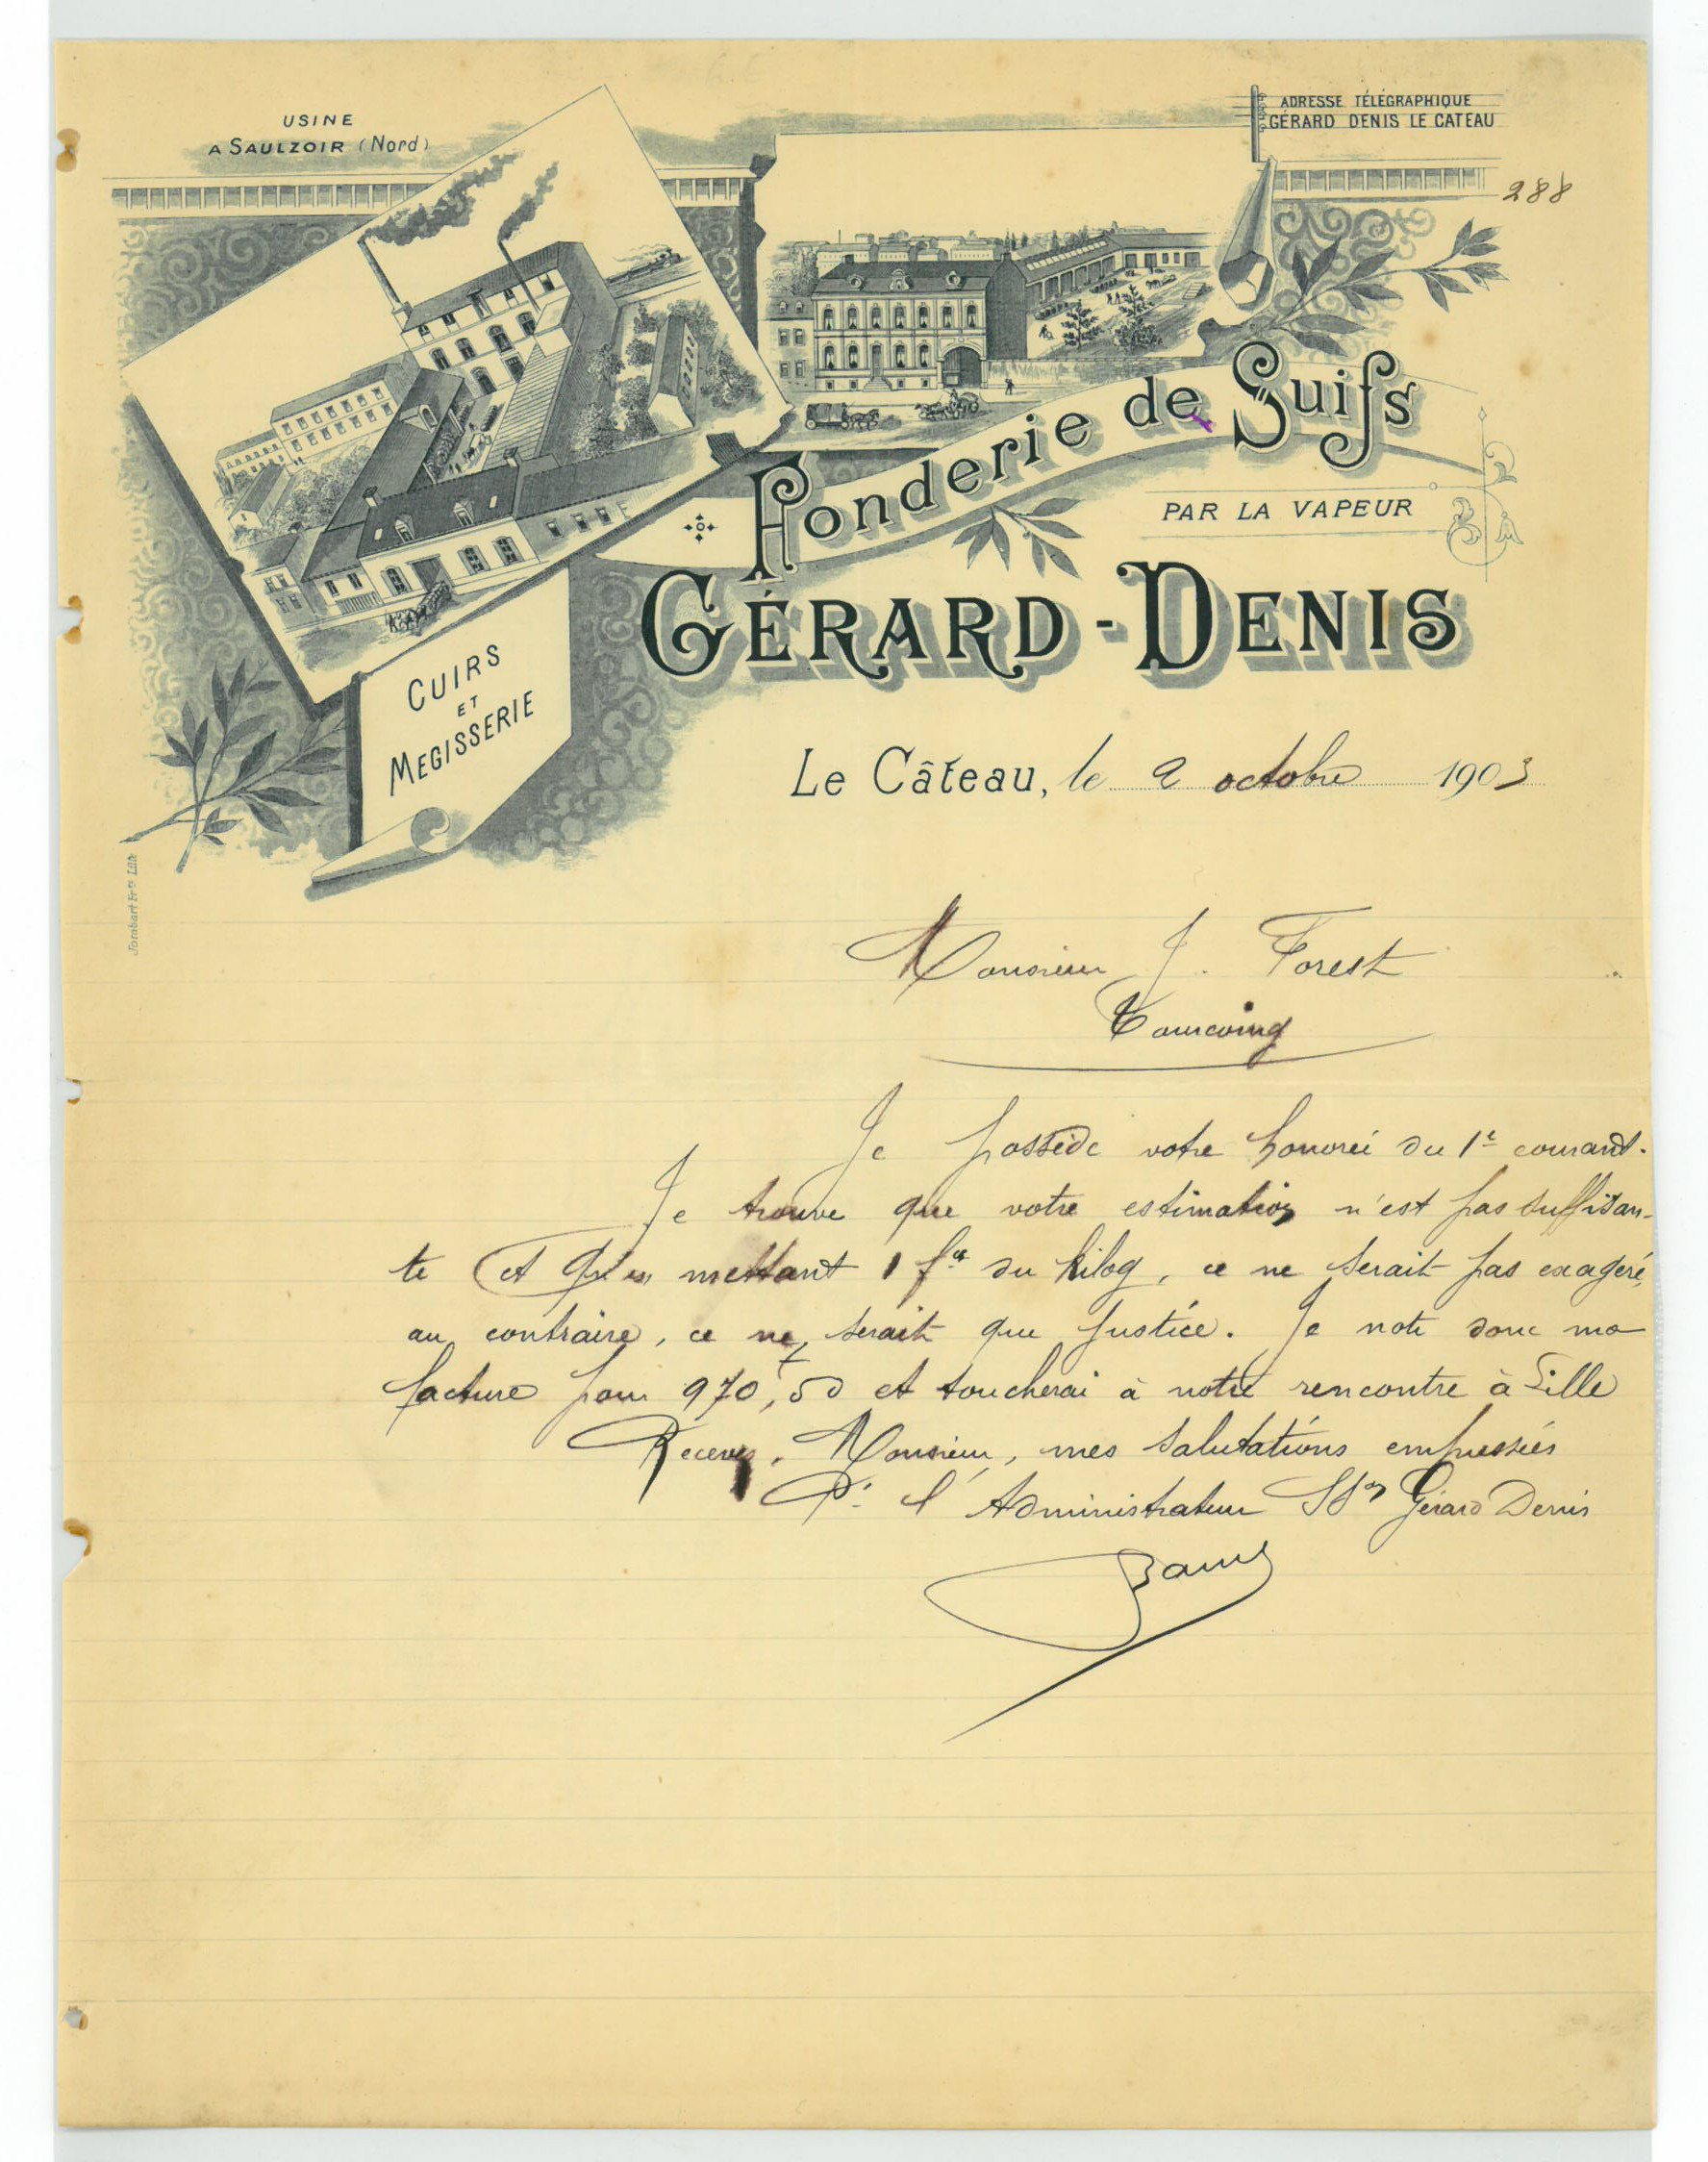 USINE
A SAULZOIR (Nord)
ADRESSE TÉLÉGRAPHIQUE
GÉRARD DENIS LE CATEAU
288
Fonderie de Suifs
PAR LA VAPEUR
GÉRARD-DENIS
CUIRS
ET
MEGISSERIE
Le Câteau, le 2 octobre 1903
Jombart Frès Lille
Monsieur J. Forest
Tourcoing
Je possède votre honorée du 1er courant.
Je trouve que votre estimation n'est pas suffisan-
te et qu'en mettant 1 fr du kilog, ce ne serait pas exagéré,
au contraire, ce ne serait que justice. Je note donc ma
facture pour 970,50 et toucherai à notre rencontre à Lille
Recevez, Monsieur, mes salutations empressées
Pr l'Administrateur Gérard Denis